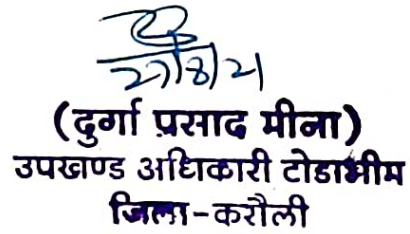 27/8/21
(दुर्गा प्रसाद मीना)
उपखण्ड अधिकारी टोडाभीम
जिला-करौली